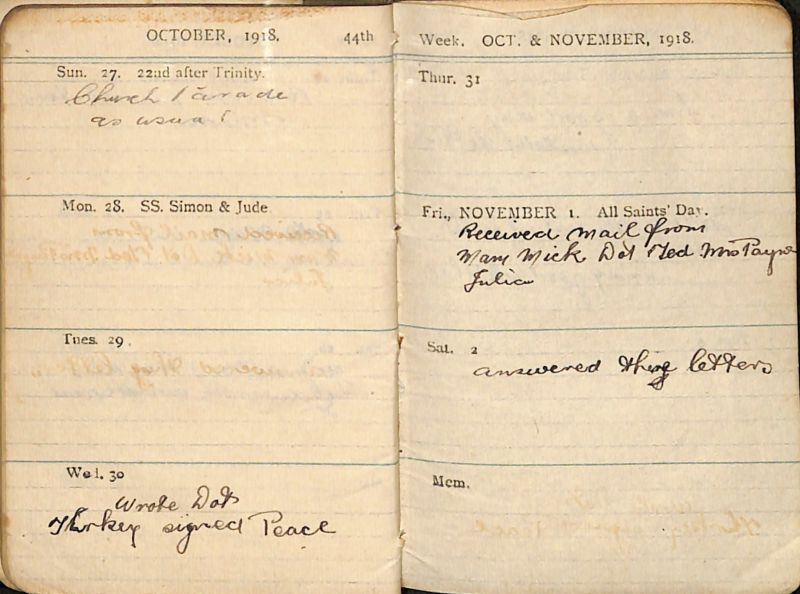 OCTOBER, 1918. 44th
Sun. 27. 22nd after Trinity.
Church Parade
as usual
Mon. 28. SS. Simon & Jude
Tues. 29.
Wed. 30
Wrote Dot
Turkey signed Peace
Week. OCT. & NOVEMBER, 1918.
Thur. 31
Fri., NOVEMBER 1. All Saints' Day.
Received mail from
Mam Mick Dot Ted Mrs Payne
Julia
Sat. 2
answered letters
Mem.